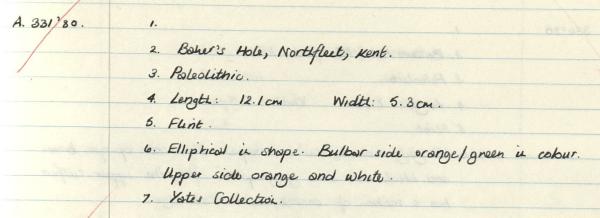 A. 331'80. 1.
2. Baker's Hole, Northfleet, Kent.
3. Paleolithic.
4. Length: 12.1cm Width: 5.3cm.
5. Flint.
6. Elliptical in shape. Bulbar side orange/green in colour.
Upper side orange and white.
7. Yates Collection.